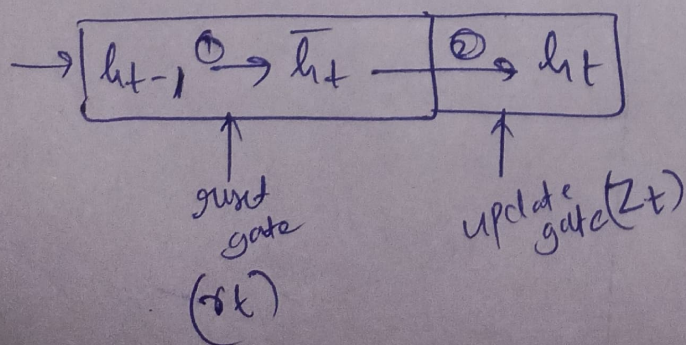 → h_t-1 ① → h̅_t ② → h_t
reset gate (r_t)
update gate (Z_t)